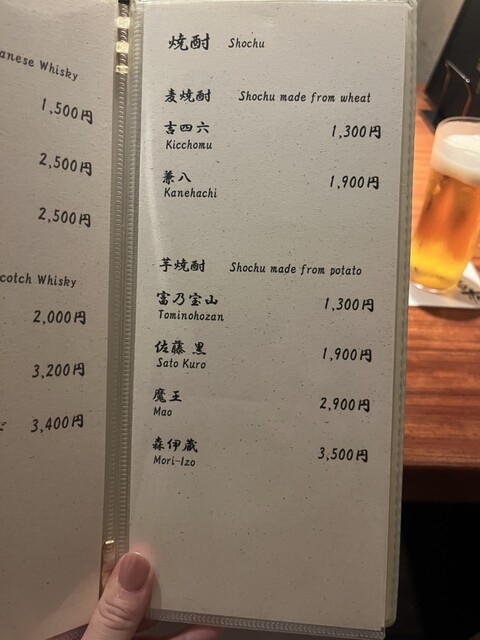 anese Whisky
1,500円
2,500円
2,500円
cotch Whisky
2,000円
3,200円
3,400円
焼酎 Shochu
麦焼酎 Shochu made from wheat
吉四六 1,300円
Kicchomu
兼八 1,900円
Kanehachi
芋焼酎 Shochu made from potato
富乃宝山 1,300円
Tominohozan
佐藤 黒 1,900円
Sato Kuro
魔王 2,900円
Mao
森伊蔵 3,500円
Mori-Izo